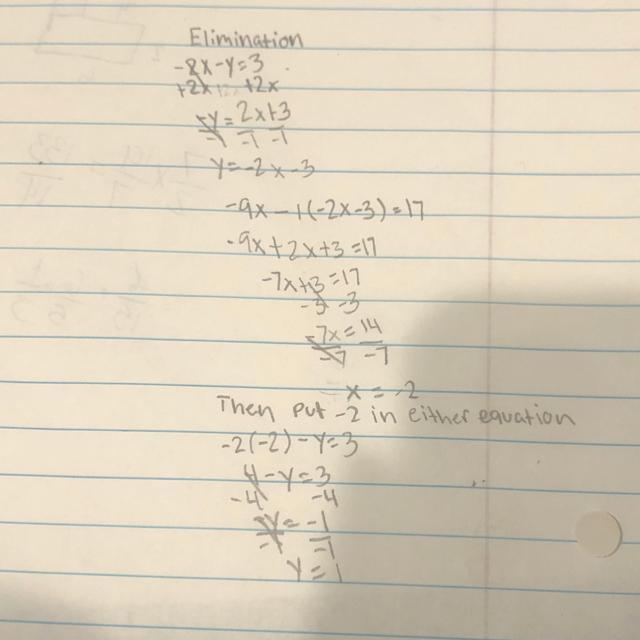 Elimination
-2x-y=3
+2x +2x
-y=2x+3
-1 -1 -1
y=-2x-3
-9x-1(-2x-3)=17
-9x+2x+3=17
-7x+3=17
-3 -3
-7x=14
-7 -7
x=-2
Then put -2 in either equation
-2(-2)-y=3
4-y=3
-4 -4
-y=-1
-1 -1
y=1